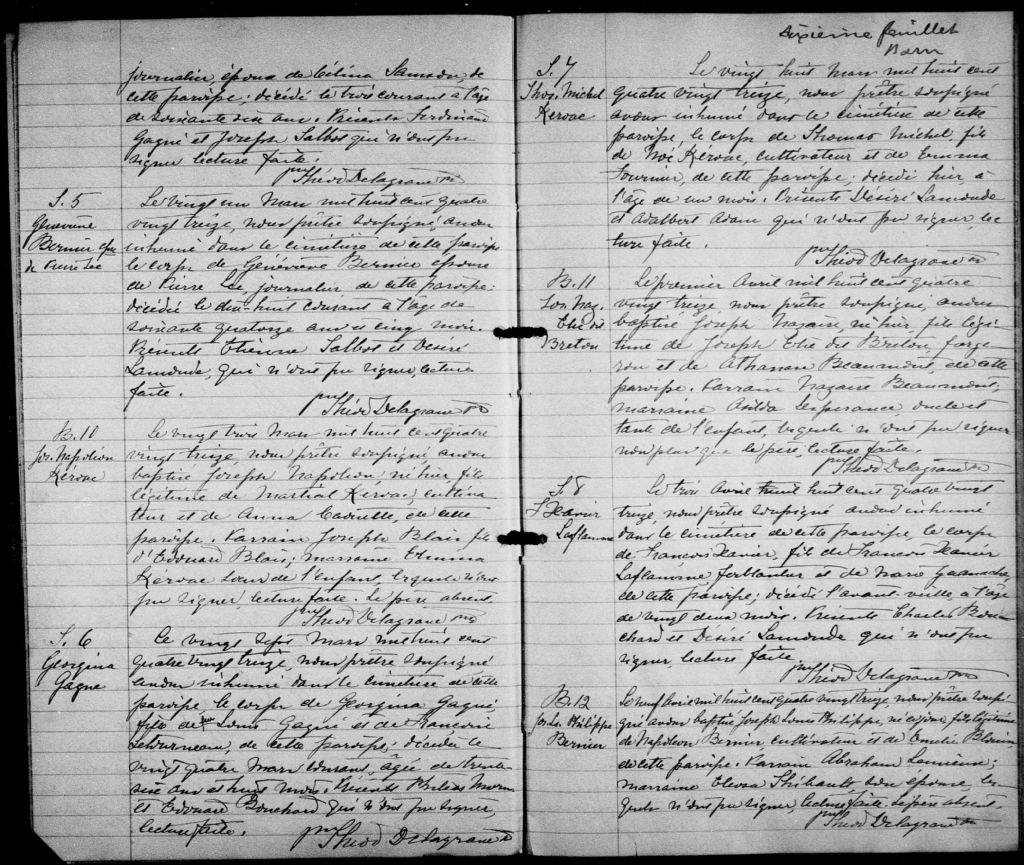 journalier, époux de Célina Samson, de
cette paroisse; décédé le trois courant à l'âge
de soixante six ans. Présents Ferdinand
Gagné et Joseph Talbot qui n'ont pu
signer lecture faite.
Théod Delagrave ptre
S. 5
Geneviève
Bernier épse
de Pierre Lee
Le vingt un Mars mil huit cent quatre
vingt treize, nous prêtre soussigné, avons
inhumé dans le cimétière de cette paroisse
le corps de Généviève Bernier épouse
de Pierre Lee journalier de cette paroisse;
décédée le dix-huit courant à l'âge de
soixante quatorze ans et cinq mois.
Présents Etienne Talbot et Désiré
Lamonde, qui n'ont pu signer, lecture
faite.
Théod Delagrave ptre
B. 10
Jos. Napoléon
Kéroac
Le vingt trois Mars mil huit cent quatre
vingt treize nous prêtre soussigné avons
baptisé Joseph Napoléon né hier fils
légitime de Martial Kéroac cultiva
teur et de Anna Cadrette, de cette
paroisse. Parrain Joseph Blais fils
d'Edouard Blais; marraine Emma
Kéroac soeur de l'enfant, lesquels n'ont
pu signer, lecture faite. Le père absent.
Théod Delagrave ptre
S. 6
Georgina
Gagné
Le vingt sept Mars mil huit cent
quatre vingt treize, nous prêtre soussigné
avons inhumé dans le cimétière de cette
paroisse le corps de Georgina Gagné
fille de feu Louis Gagné et de Françoise
Létourneau, de cette paroisse; décédée le
vingt quatre Mars courant, âgée de trente
six ans et huit mois. Présents Philias Morin
et Edouard Bouchard qui n'ont pu signer,
lecture faite.
Théod Delagrave ptre
Sixième feuillet
S. 7
Thos. Michel
Kéroac
Le vingt huit Mars mil huit cent
quatre vingt treize, nous prêtre soussigné
avons inhumé dans le cimétière de cette
paroisse le corps de Thomas Michel fils
de Noé Kéroac, cultivateur et de Emma
Fournier, de cette paroisse; décédé hier, à
l'âge de un mois. Présents Désiré Lamonde
et Adalbert Adam qui n'ont pu signer lec
ture faite.
Théod Delagrave ptre
B. 11
Jos. Naz.
Thé dit
Breton
Le premier Avril mil huit cent quatre
vingt treize nous prêtre soussigné avons
baptisé Joseph Nazaire, né hier, fils légi
time de Joseph Thé dit Breton, forge
ron et de Athanaïs Beaumont, de cette
paroisse. Parrain Nazaire Beaumont,
marraine Asilda Lespérance, oncle et
tante de l'enfant, lesquels n'ont pu signer
non plus que le père lecture faite.
Théod Delagrave ptre
S. 8
F. Xavier
Laflamme
Le trois Avril mil huit cent quatre vingt
treize, nous prêtre soussigné avons inhumé
dans le cimétière de cette paroisse, le corps
de François Xavier, fils de François Xavier
Laflamme, ferblantier et de Marie Gaumache,
de cette paroisse; décédé l'avant veille, à l'âge
de vingt deux mois. Présents Charles Bou
chard et Désiré Lamonde qui n'ont pu
signer, lecture faite.
Théod Delagrave ptre
B. 12
Jos. Ls. Philippe
Bernier
Le neuf Avril mil huit cent quatre vingt treize, nous prêtre soussi
gné avons baptisé Joseph Louis Philippe, né ce jour, fils légitime
de Napoléon Bernier, cultivateur et de Emélie Blouin
de cette paroisse. Parrain Abraham Lemieux;
marraine Elvosa Thibault son épouse, les
quels n'ont pu signer, lecture faite. Le père absent.
Théod Delagrave ptre